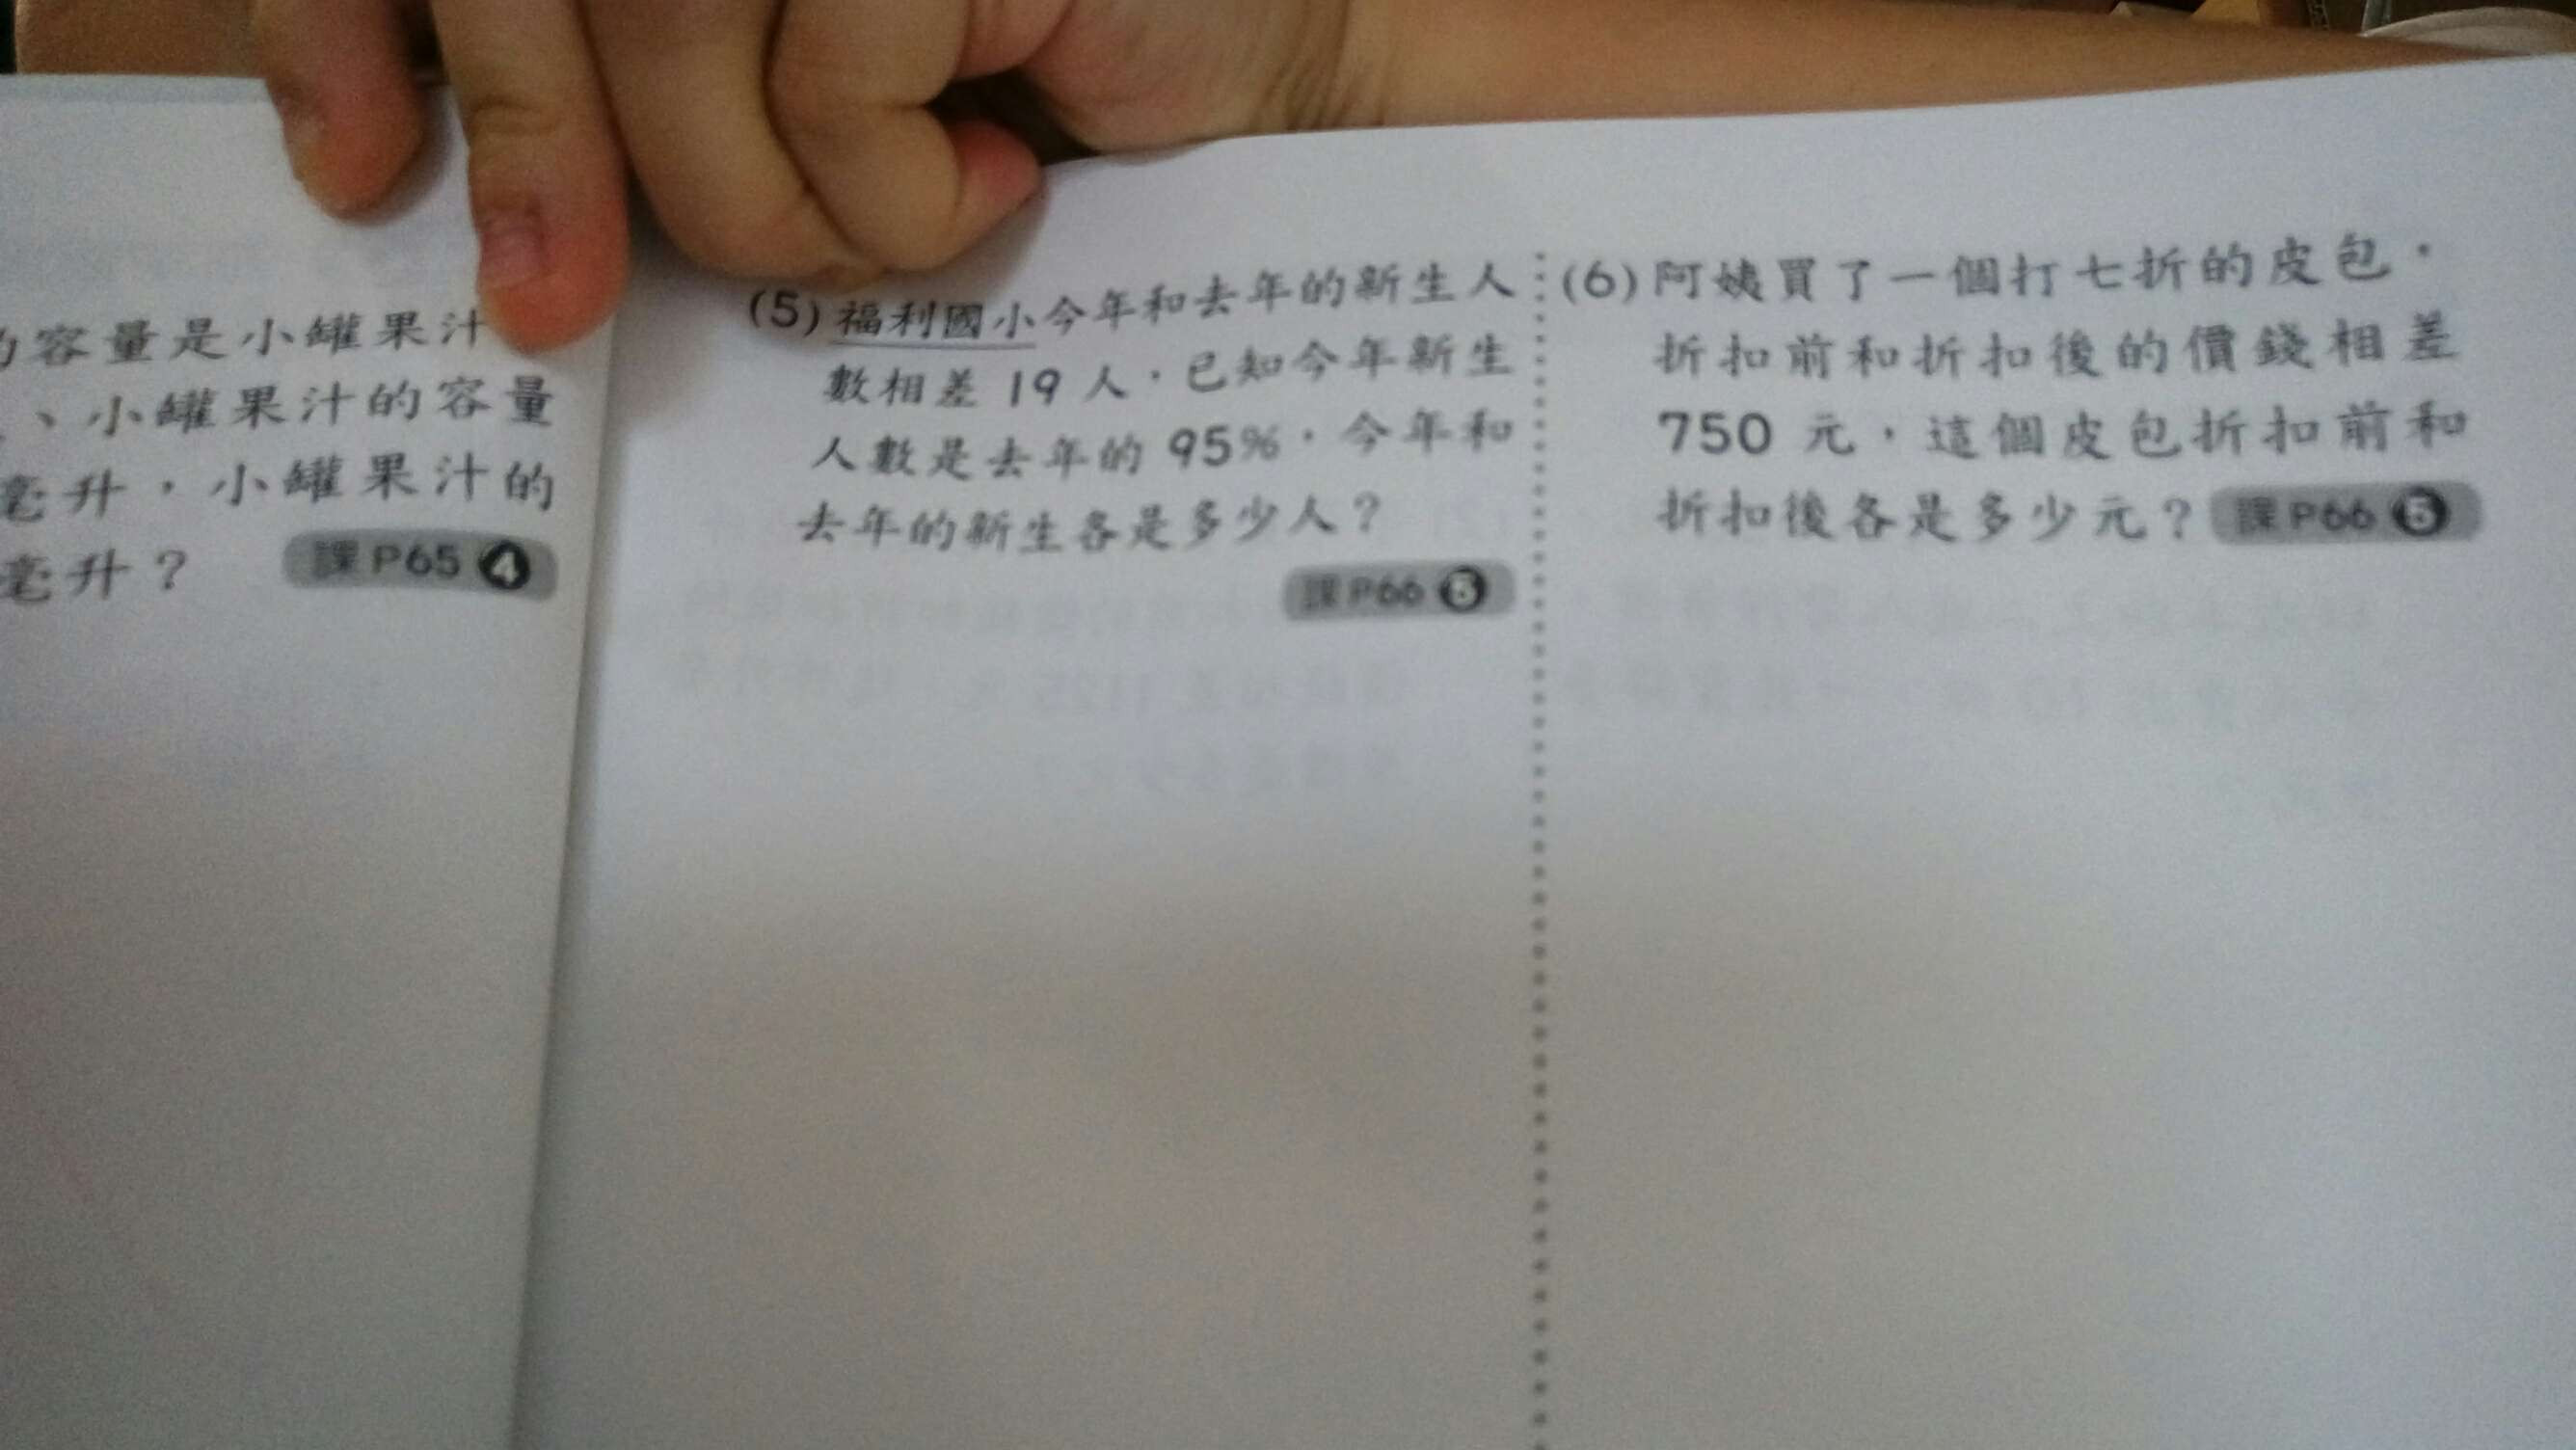 容量是小罐果汁
、小罐果汁的容量
毫升，小罐果汁的
毫升？ 課P65 4
(5) 福利國小今年和去年的新生人
數相差 19 人，已知今年新生
人數是去年的 95%，今年和
去年的新生各是多少人？
課P66 5
(6) 阿姨買了一個打七折的皮包，
折扣前和折扣後的價錢相差
750 元，這個皮包折扣前和
折扣後各是多少元？ 課P66 5